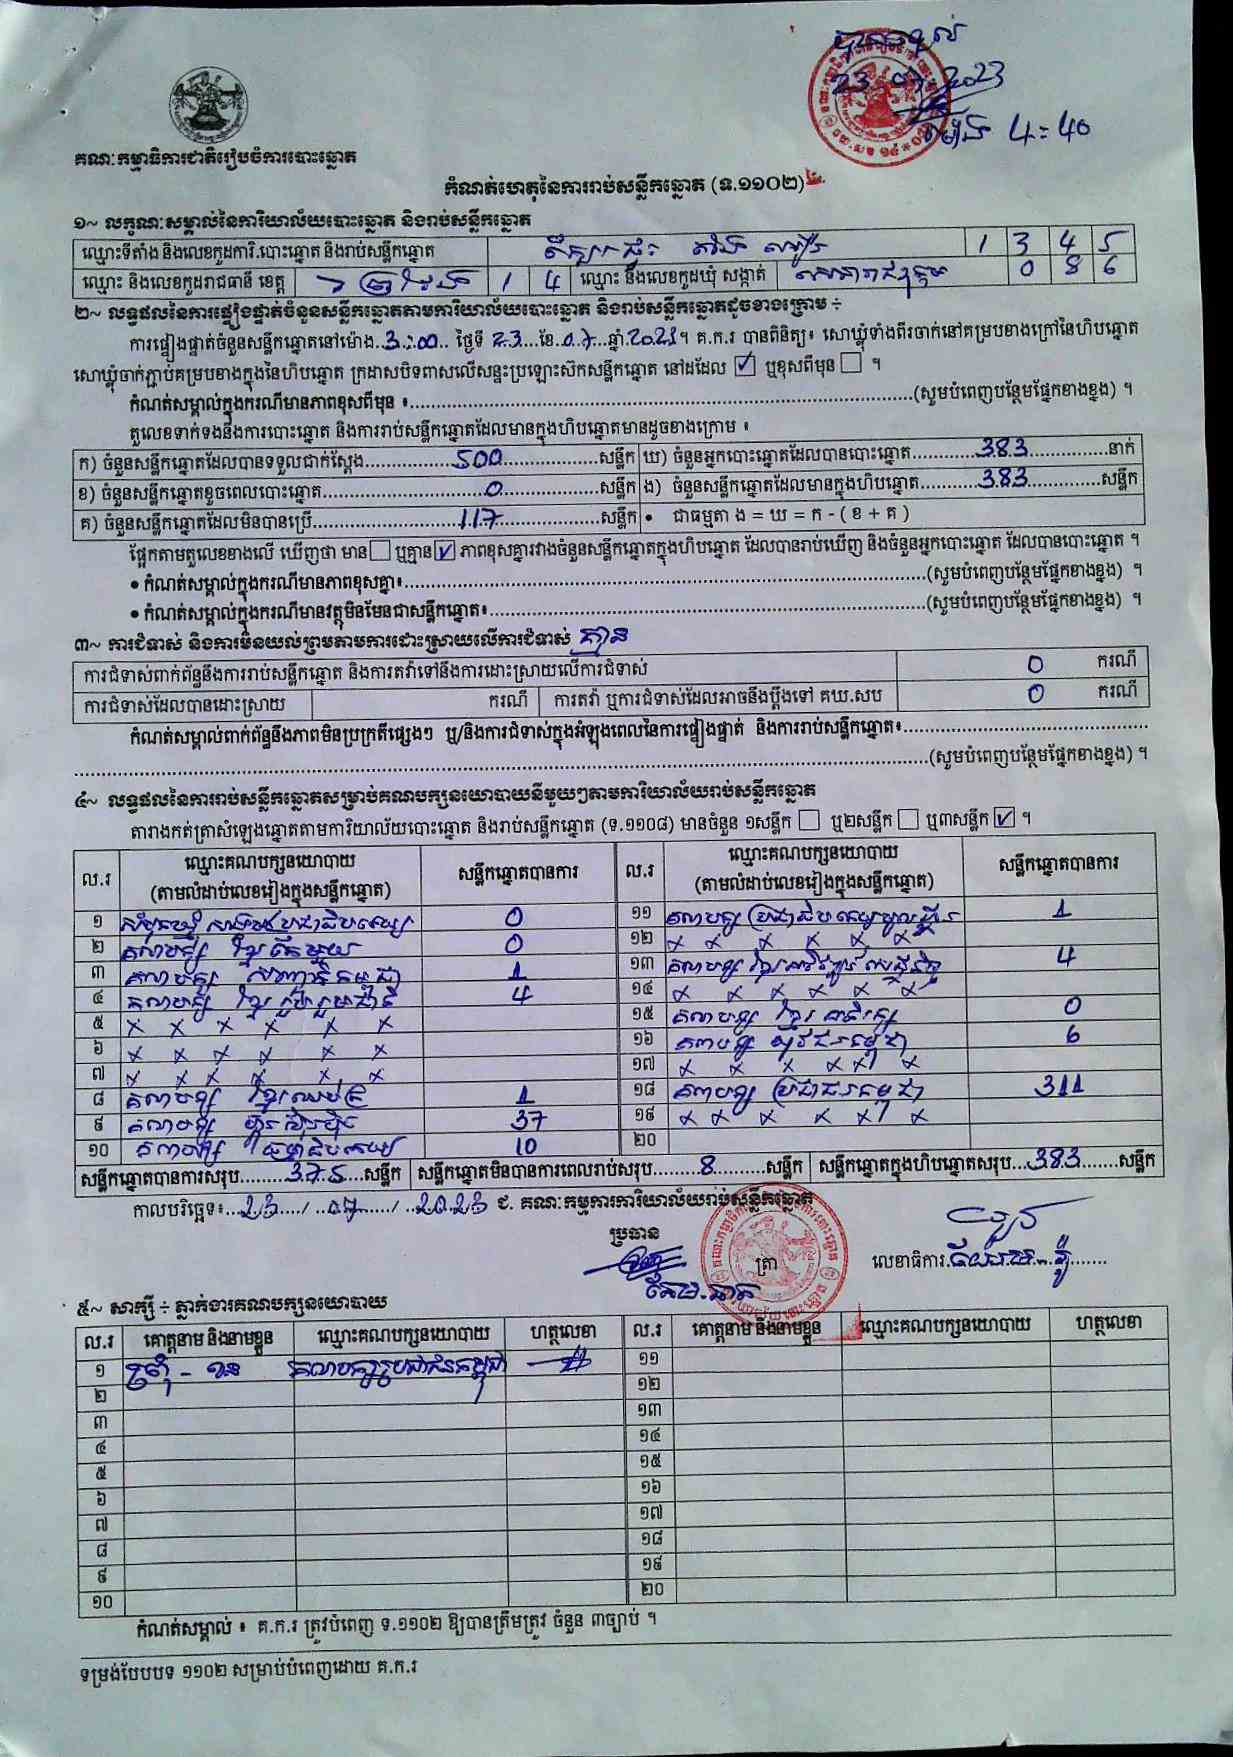 23 07 2023
ម៉ោង 4:40
គណៈកម្មាធិការជាតិរៀបចំការបោះឆ្នោត
កំណត់ហេតុនៃការរាប់សន្លឹកឆ្នោត (ទ.១១០២)
១~ លក្ខណៈសម្គាល់នៃការិយាល័យបោះឆ្នោត និងរាប់សន្លឹកឆ្នោត
ឈ្មោះទីតាំង និងលេខកូដការិ.បោះឆ្នោត និងរាប់សន្លឹកឆ្នោត 1 3 4 5
ឈ្មោះ និងលេខកូដរាជធានី ខេត្ត ព្រៃវែង 1 4 ឈ្មោះ និងលេខកូដឃុំ សង្កាត់ 0 8 6
២~ លទ្ធផលនៃការផ្ទៀងផ្ទាត់ចំនួនសន្លឹកឆ្នោតតាមការិយាល័យបោះឆ្នោត និងរាប់សន្លឹកឆ្នោតដូចខាងក្រោម ÷
ការផ្ទៀងផ្ទាត់ចំនួនសន្លឹកឆ្នោតនៅម៉ោង 3:00 ថ្ងៃទី 23 ខែ 07 ឆ្នាំ 2023។ គ.ក.រ បានពិនិត្យ៖ សោឃ្លុំទាំងពីរចាក់នៅគម្របខាងក្រៅនៃហិបឆ្នោត
សោឃ្លុំចាក់ភ្ជាប់គម្របខាងក្នុងនៃហិបឆ្នោត ក្រដាសបិទពាសលើសន្ទះប្រឡោះស៊កសន្លឹកឆ្នោត នៅដដែល ☑ ឬខុសពីមុន ☐ ។
កំណត់សម្គាល់ក្នុងករណីមានភាពខុសពីមុន ៖ (សូមបំពេញបន្ថែមផ្នែកខាងខ្នង) ។
តួលេខទាក់ទងនឹងការបោះឆ្នោត និងការរាប់សន្លឹកឆ្នោតដែលមានក្នុងហិបឆ្នោតមានដូចខាងក្រោម ៖
ក) ចំនួនសន្លឹកឆ្នោតដែលបានទទួលជាក់ស្តែង 500 សន្លឹក ឃ) ចំនួនអ្នកបោះឆ្នោតដែលបានបោះឆ្នោត 383 នាក់
ខ) ចំនួនសន្លឹកឆ្នោតខូចពេលបោះឆ្នោត 0 សន្លឹក ង) ចំនួនសន្លឹកឆ្នោតដែលមានក្នុងហិបឆ្នោត 383 សន្លឹក
គ) ចំនួនសន្លឹកឆ្នោតដែលមិនបានប្រើ 117 សន្លឹក • ជាធម្មតា ង = ឃ = ក - ( ខ + គ )
ផ្អែកតាមតួលេខខាងលើ ឃើញថា មាន ☐ ឬគ្មាន ☑ ភាពខុសគ្នារវាងចំនួនសន្លឹកឆ្នោតក្នុងហិបឆ្នោត ដែលបានរាប់ឃើញ និងចំនួនអ្នកបោះឆ្នោត ដែលបានបោះឆ្នោត ។
• កំណត់សម្គាល់ក្នុងករណីមានភាពខុសគ្នា៖ (សូមបំពេញបន្ថែមផ្នែកខាងខ្នង) ។
• កំណត់សម្គាល់ក្នុងករណីមានវត្ថុមិនមែនជាសន្លឹកឆ្នោត៖ (សូមបំពេញបន្ថែមផ្នែកខាងខ្នង) ។
៣~ ការជំទាស់ និងការមិនយល់ព្រមតាមការដោះស្រាយលើការជំទាស់ គ្មាន
ការជំទាស់ពាក់ព័ន្ធនឹងការរាប់សន្លឹកឆ្នោត និងការតវ៉ាទៅនឹងការដោះស្រាយលើការជំទាស់ 0 ករណី
ការជំទាស់ដែលបានដោះស្រាយ ករណី ការតវ៉ា ឬការជំទាស់ដែលអាចនឹងប្តឹងទៅ គឃ.សប 0 ករណី
កំណត់សម្គាល់ពាក់ព័ន្ធនឹងភាពមិនប្រក្រតីផ្សេងៗ ឬ/និងការជំទាស់ក្នុងអំឡុងពេលនៃការផ្ទៀងផ្ទាត់ និងការរាប់សន្លឹកឆ្នោត៖
(សូមបំពេញបន្ថែមផ្នែកខាងខ្នង) ។
៤~ លទ្ធផលនៃការរាប់សន្លឹកឆ្នោតសម្រាប់គណបក្សនយោបាយនីមួយៗតាមការិយាល័យរាប់សន្លឹកឆ្នោត
តារាងកត់ត្រាសំឡេងឆ្នោតតាមការិយាល័យបោះឆ្នោត និងរាប់សន្លឹកឆ្នោត (ទ.១១០៨) មានចំនួន ១សន្លឹក ☐ ឬ២សន្លឹក ☐ ឬ៣សន្លឹក ☑ ។
ល.រ ឈ្មោះគណបក្សនយោបាយ (តាមលំដាប់លេខរៀងក្នុងសន្លឹកឆ្នោត) សន្លឹកឆ្នោតបានការ ល.រ ឈ្មោះគណបក្សនយោបាយ (តាមលំដាប់លេខរៀងក្នុងសន្លឹកឆ្នោត) សន្លឹកឆ្នោតបានការ
១ សំបុកឃ្មុំសង្គមប្រជាធិបតេយ្យ 0
២ គណបក្ស ខ្មែរតែមួយ 0
៣ គណបក្ស សញ្ជាតិកម្ពុជា 1
៤ គណបក្ស ខ្មែររួបរួមជាតិ 4
៥ x x x x x x
៦ x x x x x x
៧ x x x x x x
៨ គណបក្ស ខ្មែរឈប់ក្រ 1
៩ គណបក្ស ហ្វ៊ុនស៊ិនប៉ិច 37
១០ គណបក្ស ធម្មាធិបតេយ្យ 10
១១ គណបក្ស ប្រជាធិបតេយ្យមូលដ្ឋាន 1
១២ x x x x x x
១៣ គណបក្ស ខ្មែរអភិវឌ្ឍន៍សេដ្ឋកិច្ច 4
១៤ x x x x x x
១៥ គណបក្ស ខ្មែរអភិរក្ស 0
១៦ គណបក្ស យុវជនកម្ពុជា 6
១៧ x x x x x x
១៨ គណបក្ស ប្រជាជនកម្ពុជា 311
១៩ x x x x x x
២០
សន្លឹកឆ្នោតបានការសរុប 375 សន្លឹក សន្លឹកឆ្នោតមិនបានការពេលរាប់សរុប 8 សន្លឹក សន្លឹកឆ្នោតក្នុងហិបឆ្នោតសរុប 383 សន្លឹក
កាលបរិច្ឆេទ៖ 23 / 07 / 2023 ជ. គណៈកម្មការការិយាល័យរាប់សន្លឹកឆ្នោត
ប្រធាន
ត្រា
លេខាធិការ
៥~ សាក្សី ÷ ភ្នាក់ងារគណបក្សនយោបាយ
ល.រ គោត្តនាម និងនាមខ្លួន ឈ្មោះគណបក្សនយោបាយ ហត្ថលេខា ល.រ គោត្តនាម និងនាមខ្លួន ឈ្មោះគណបក្សនយោបាយ ហត្ថលេខា
១ គណបក្សប្រជាជនកម្ពុជា ១១
២ ១២
៣ ១៣
៤ ១៤
៥ ១៥
៦ ១៦
៧ ១៧
៨ ១៨
៩ ១៩
១០ ២០
កំណត់សម្គាល់ ៖ គ.ក.រ ត្រូវបំពេញ ទ.១១០២ ឱ្យបានត្រឹមត្រូវ ចំនួន ៣ច្បាប់ ។
ទម្រង់បែបបទ ១១០២ សម្រាប់បំពេញដោយ គ.ក.រ